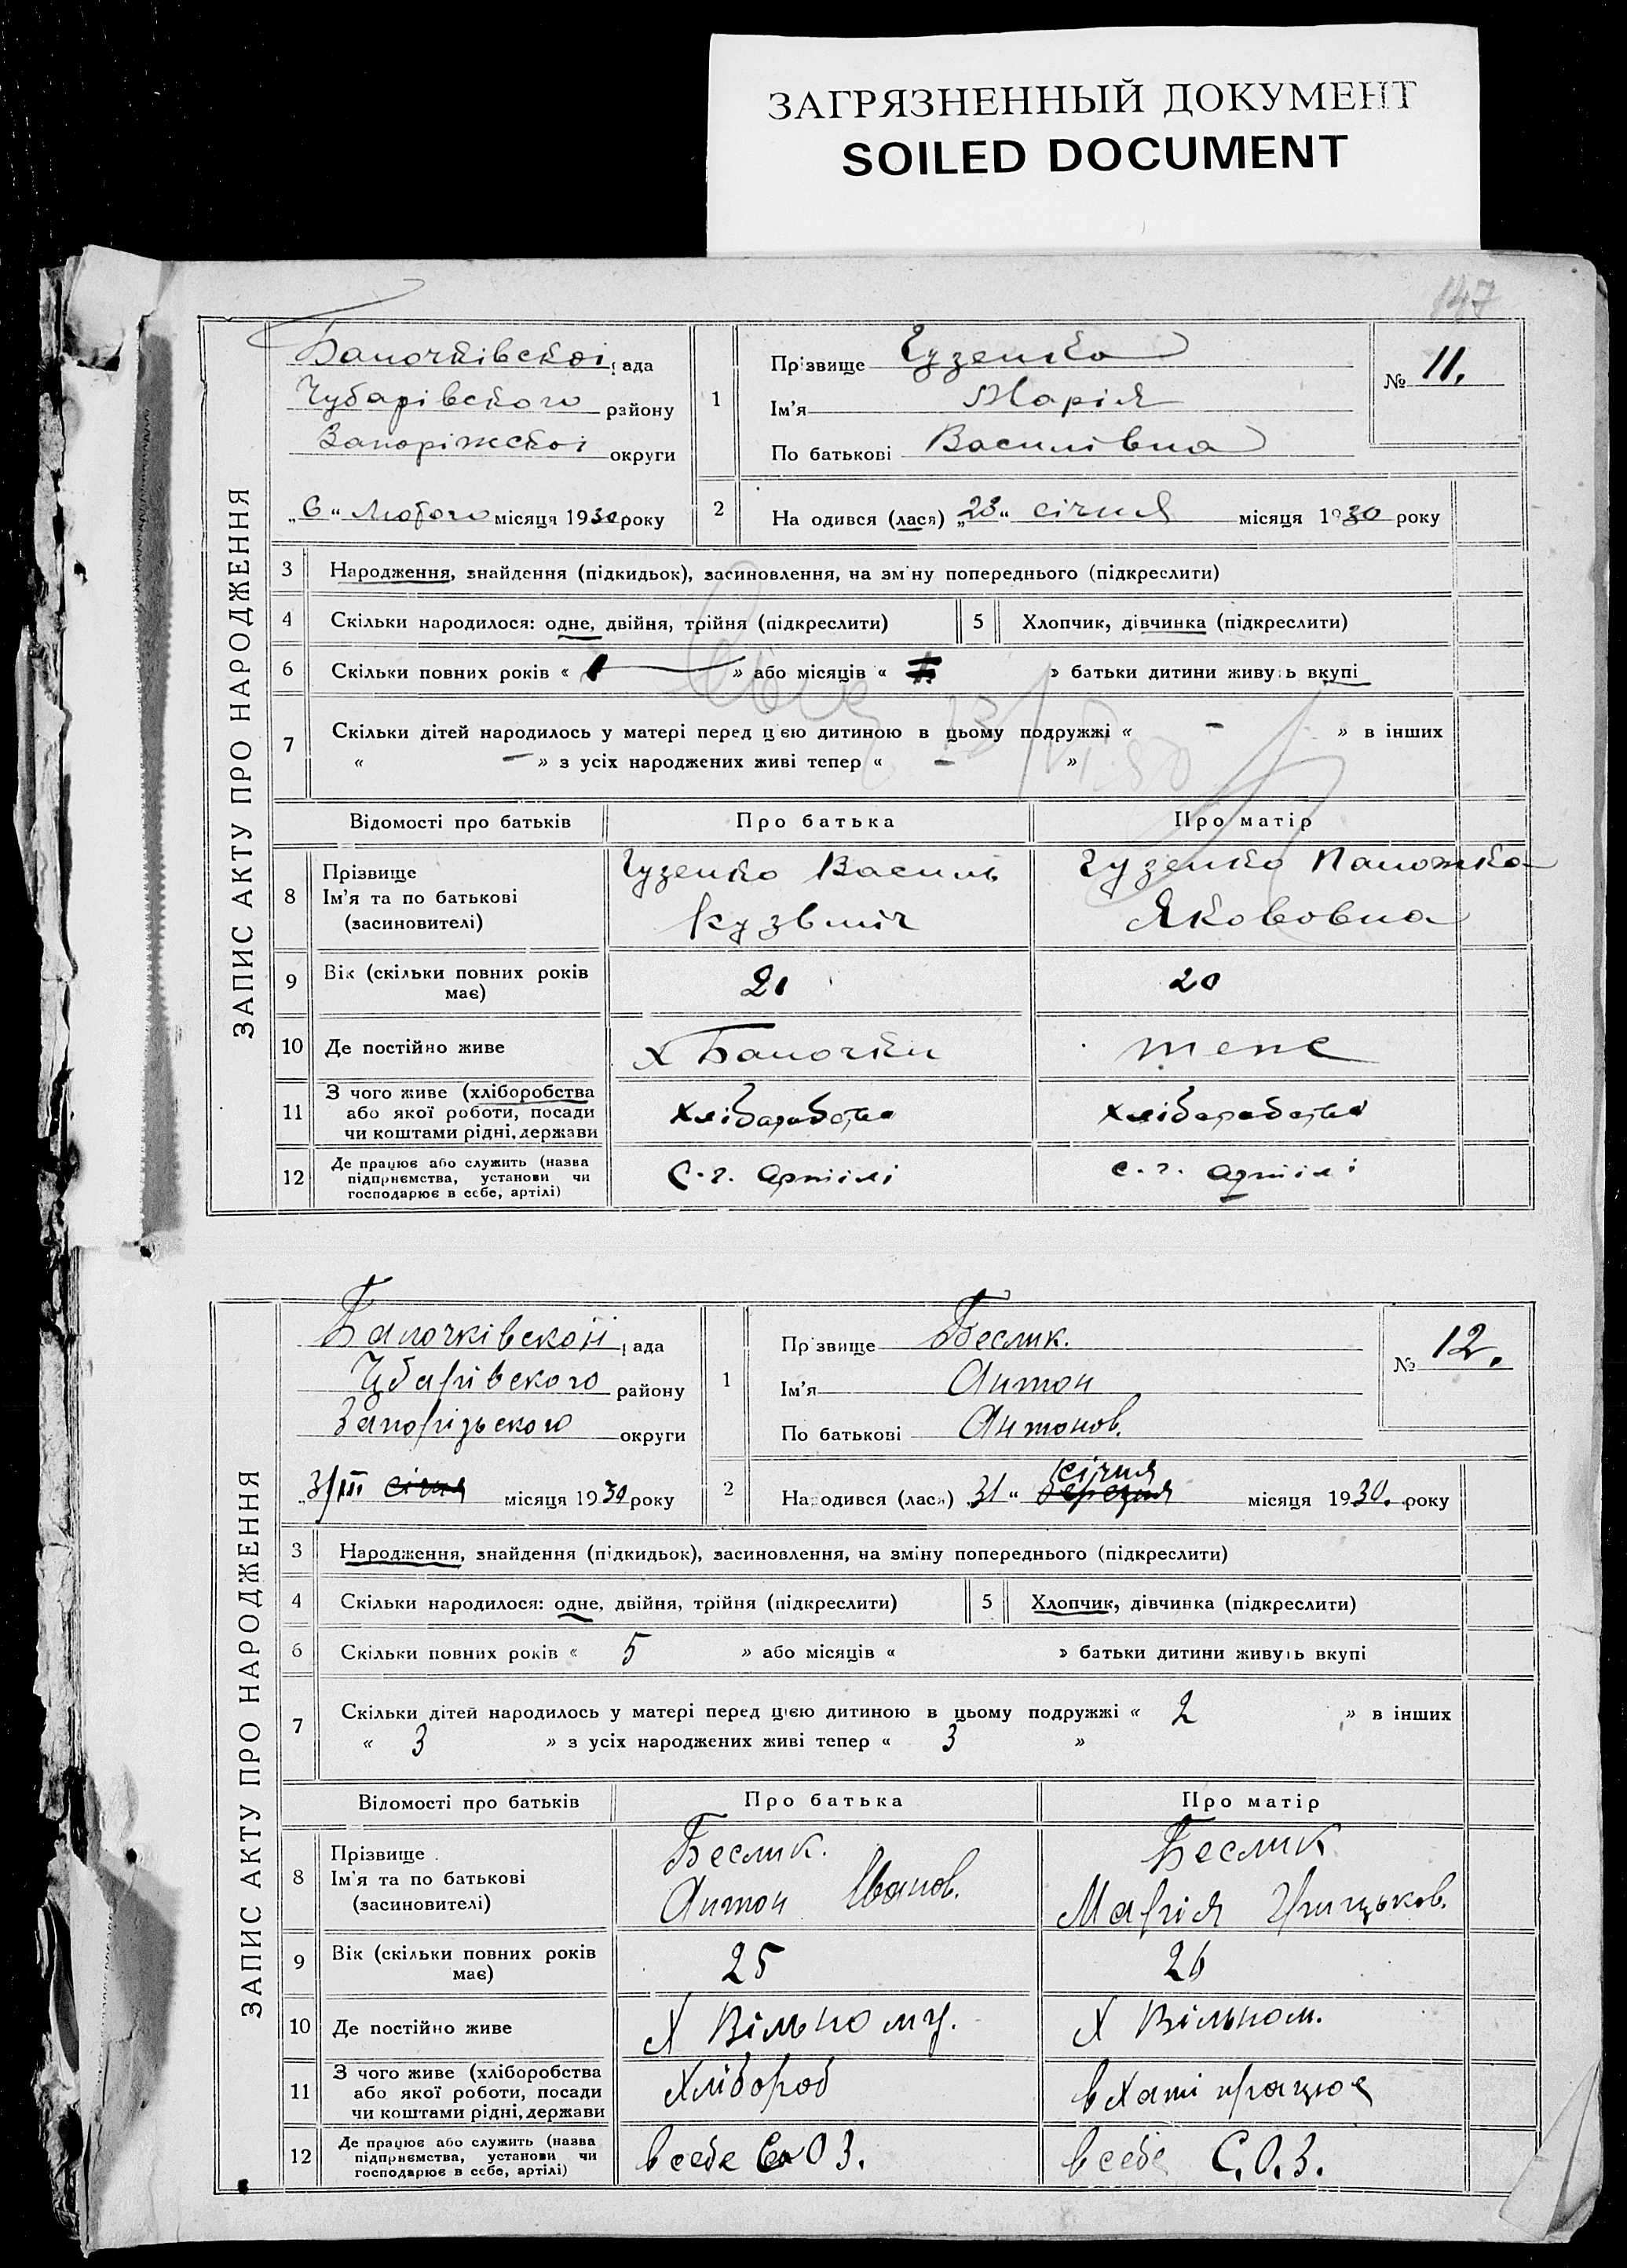 ЗАГРЯЗНЕННЫЙ ДОКУМЕНТ
SOILED DOCUMENT
147
ЗАПИС АКТУ ПРО НАРОДЖЕННЯ
Балочківської рада
Чубарівського району
Запоріжської округи
„6“ Лютого місяця 1930 року
1
Прізвище Гузенко
Ім'я Марія
По батькові Василівна
№ 11.
2
На одився (лася) „23“ січня місяця 1930 року
3 Народження, знайдення (підкидьок), засиновлення, на зміну попереднього (підкреслити)
4 Скільки народилося: одне, двійня, трійня (підкреслити) 5 Хлопчик, дівчинка (підкреслити)
6 Скільки повних років « 1 » або місяців « » батьки дитини живуть вкупі
7 Скільки дітей народилось у матері перед цією дитиною в цьому подружжі « - » в інших
« - » з усіх народжених живі тепер « - »
Відомості про батьків Про батька Про матір
8 Прізвище Ім'я та по батькові (засиновителі) Гузенко Василь Кузьміч Гузенко Палажка Якововна
9 Вік (скільки повних років має) 21 20
10 Де постійно живе х Балочки теке
11 З чого живе (хліборобства або якої роботи, посади чи коштами рідні, держави хліборобство хліборобство
12 Де працює або служить (назва підприємства, установи чи господарює в себе, артілі) с.-г. артілі с.-г. артілі
ЗАПИС АКТУ ПРО НАРОДЖЕННЯ
Балочківської рада
Чубарівського району
Запорізьского округи
„3/III січня місяця 1930 року
1
Прізвище Беслик.
Ім'я Антон
По батькові Антонов.
№ 12.
2
січня
Народився (лася) 31“ березня місяця 1930. року
3 Народження, знайдення (підкидьок), засиновлення, на зміну попереднього (підкреслити)
4 Скільки народилося: одне, двійня, трійня (підкреслити) 5 Хлопчик, дівчинка (підкреслити)
6 Скільки повних років « 5 » або місяців « » батьки дитини живуть вкупі
7 Скільки дітей народилось у матері перед цією дитиною в цьому подружжі « 2 » в інших
« 3 » з усіх народжених живі тепер « 3 »
Відомості про батьків Про батька Про матір
8 Прізвище Ім'я та по батькові (засиновителі) Беслик. Антон Іванов. Беслик Марія Грицьков.
9 Вік (скільки повних років має) 25 26
10 Де постійно живе х Вільному. х Вільном.
11 З чого живе (хліборобства або якої роботи, посади чи коштами рідні, держави Хлібороб в хаті працює
12 Де працює або служить (назва підприємства, установи чи господарює в себе, артілі) в себе С.О.З. в себе С.О.З.